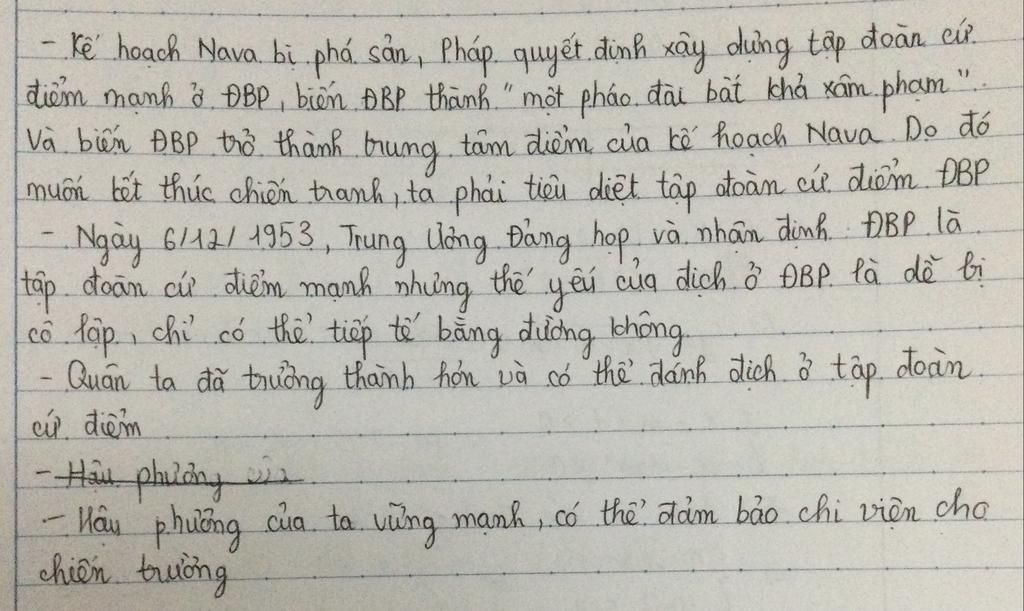 - Kế hoạch Nava bị phá sản, Pháp quyết định xây dựng tập đoàn cứ
điểm mạnh ở ĐBP, biến ĐBP thành "một pháo đài bất khả xâm phạm".
Và biến ĐBP trở thành trung tâm điểm của kế hoạch Nava. Do đó
muốn kết thúc chiến tranh, ta phải tiêu diệt tập đoàn cứ điểm ĐBP
- Ngày 6/12/1953, Trung Ương Đảng họp và nhận định ĐBP là
tập đoàn cứ điểm mạnh nhưng thế yếu của địch ở ĐBP là dễ bị
cô lập, chỉ có thể tiếp tế bằng đường không.
- Quân ta đã trưởng thành hơn và có thể đánh địch ở tập đoàn
cứ điểm
- Hậu phương của
- Hậu phương của ta vững mạnh, có thể đảm bảo chi viện cho
chiến trường